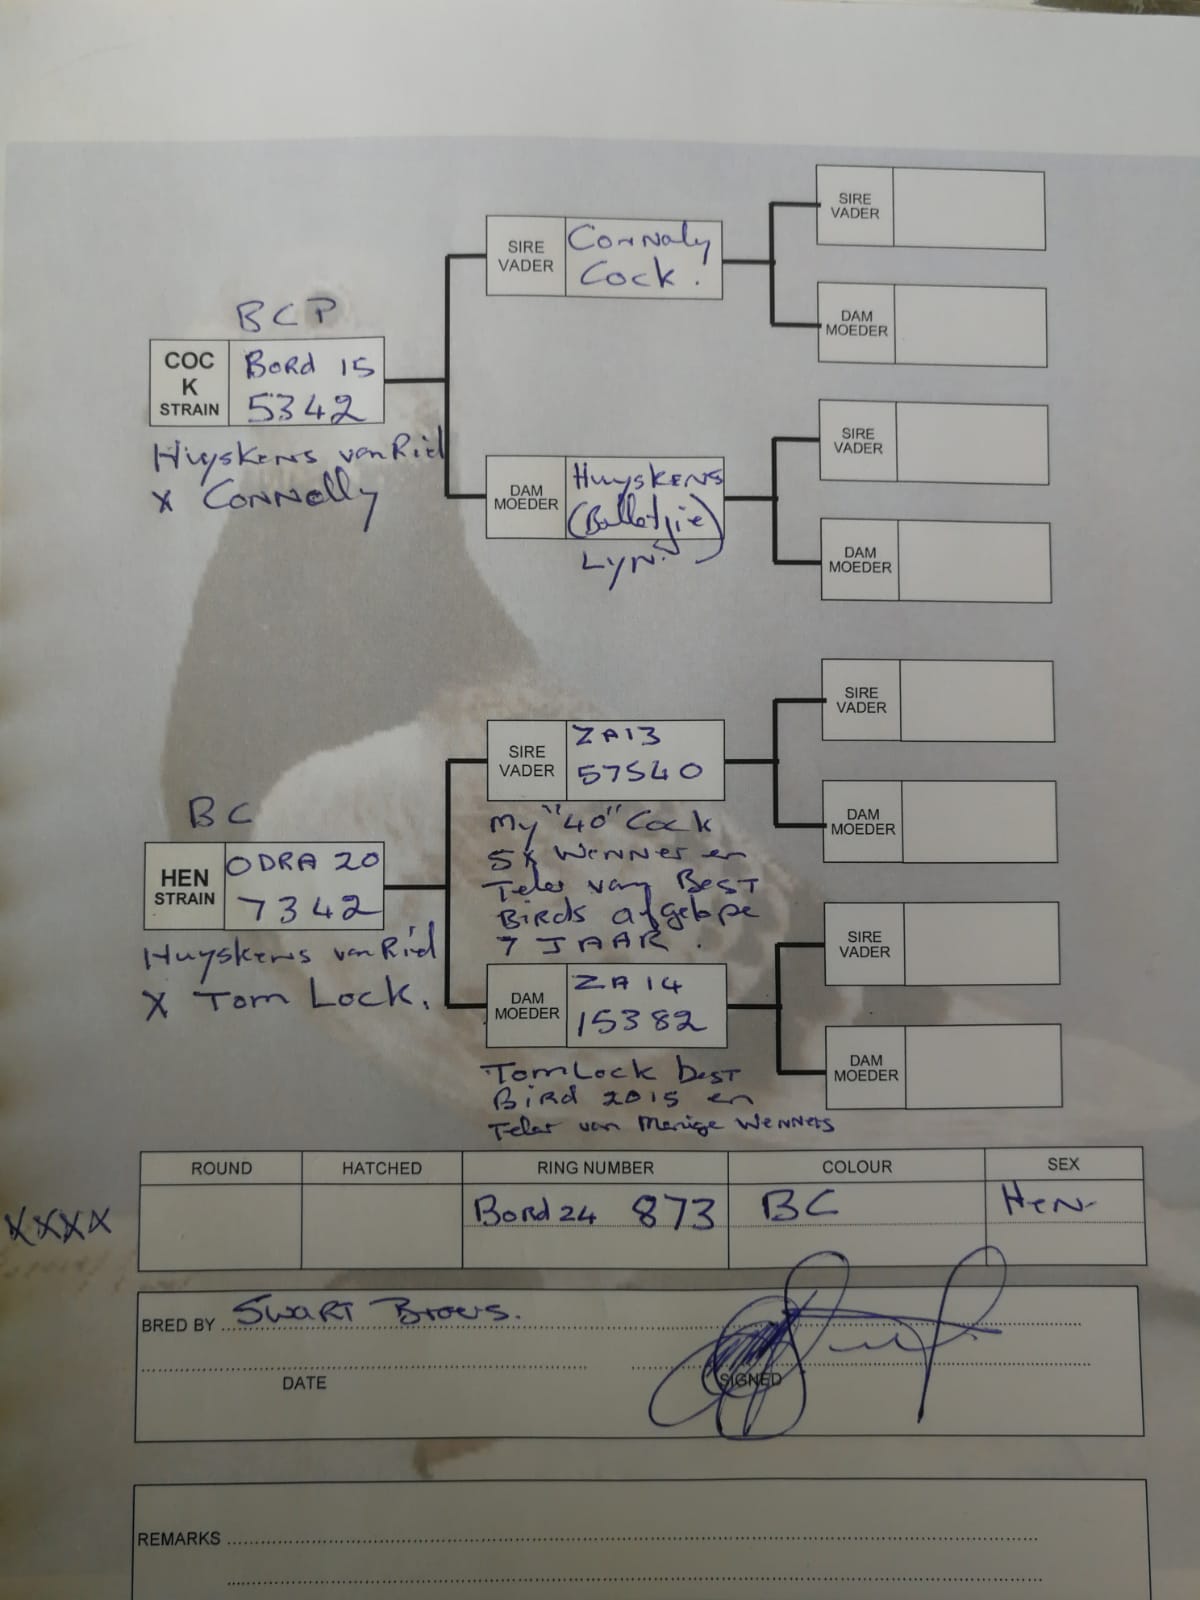 SIRE
VADER
DAM
MOEDER
SIRE
VADER
Connaly
Cock.
BCP
COC
K
STRAIN
Bord 15
5342
Huyskens van Riel
X Connolly
DAM
MOEDER
Huyskens
(Balletjie)
Lyn.
SIRE
VADER
DAM
MOEDER
SIRE
VADER
DAM
MOEDER
SIRE
VADER
ZA13
57540
My "40" Cock
5X Wenner en
Teler van Best
Birds afgelope
7 JAAR.
BC
HEN
STRAIN
ODRA 20
7342
Huyskens van Riel
X Tom Lock.
DAM
MOEDER
ZA 14
15382
Tom Lock best
Bird 2015 en
Teler van Menige Wenners
SIRE
VADER
DAM
MOEDER
ROUND HATCHED RING NUMBER COLOUR SEX
XXXX Bord 24 873 BC Hen
BRED BY Swart Broers.
DATE SIGNED
REMARKS